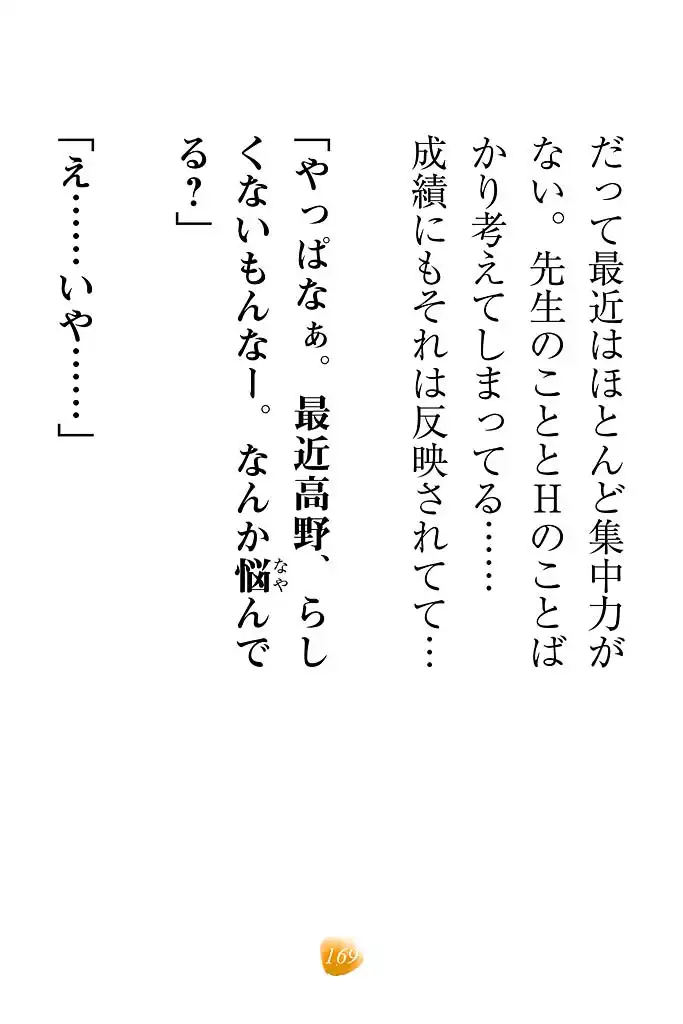 だって最近はほとんど集中力が
ない。先生のこととＨのことば
かり考えてしまってる……
成績にもそれは反映されてて…
「やっぱなぁ。最近高野、らし
くないもんなー。なんか悩んで
なや
る？」
「え……いや……」
169